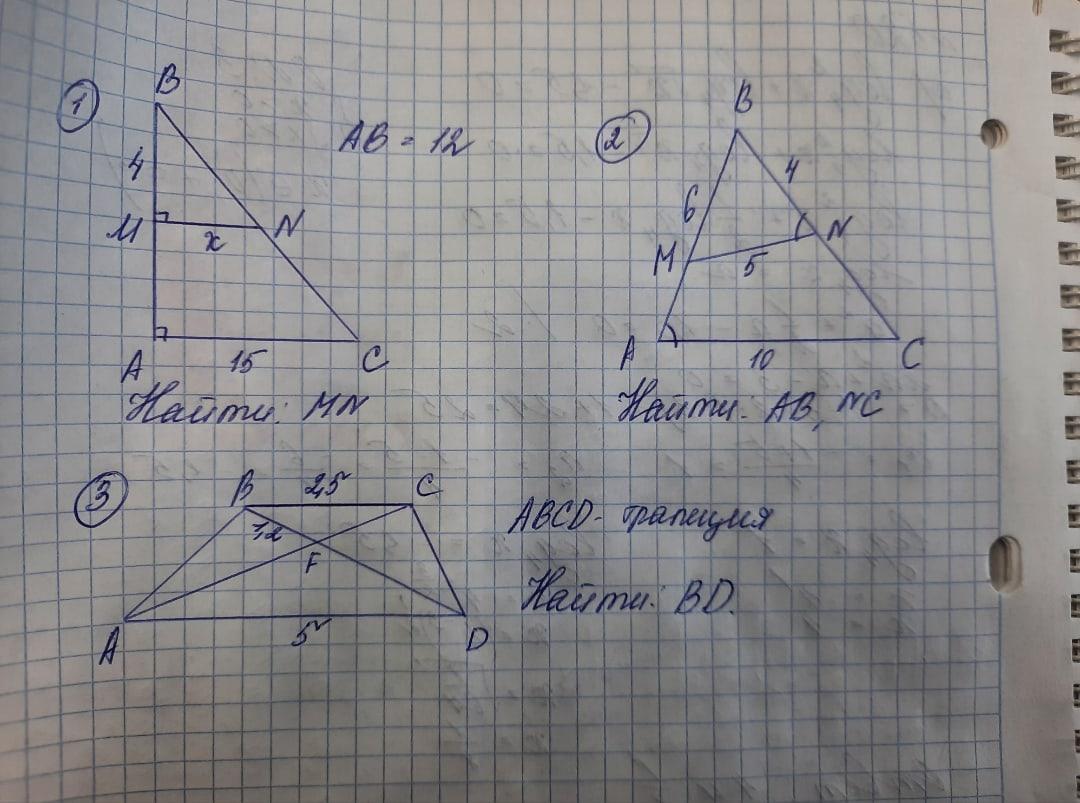 1
B
AB = 12
4
M
x
N
A
15
C
Найти: MN
2
B
6
4
M
5
N
A
10
C
Найти: AB, NC
3
B
2,5
C
1,2
F
A
5
D
ABCD - трапеция
Найти: BD.